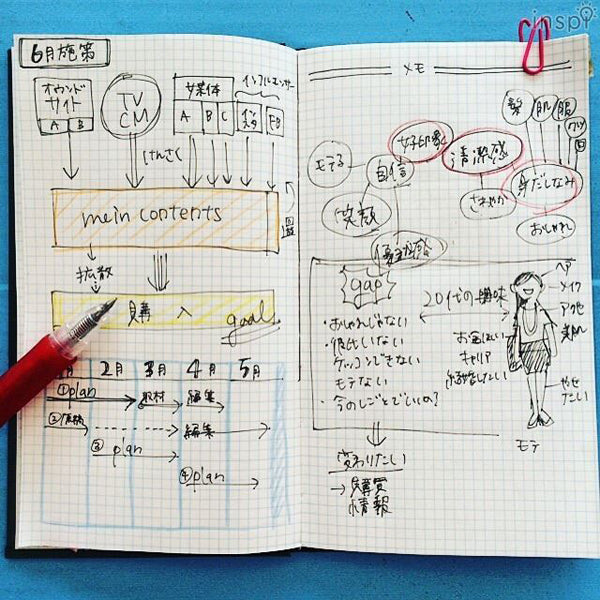 inspi
6月施策
オウンド
サイト
A B
TV
CM
女媒体
A B C
インフルエンサー
インスタ
FB
けんさく
mein contents
回遊
拡散
購入
goal
月 2月 3月 4月 5月
①plan
取材
編集
②
編集
③plan
④plan
メモ
髪
肌
服
クツ
モテる
自信
女子印象
清潔感
身だしなみ
笑顔
さわやか
おしゃれ
gap
20代の興味
・おしゃれじゃない
・彼氏いない
・ケッコンできない
・モテない
・今のしごとでいいの?
お金ほしい
キャリア
結婚したい
ヘア
メイク
アクセ
美肌
やせたい
モテ
変わりたい
→購買
情報